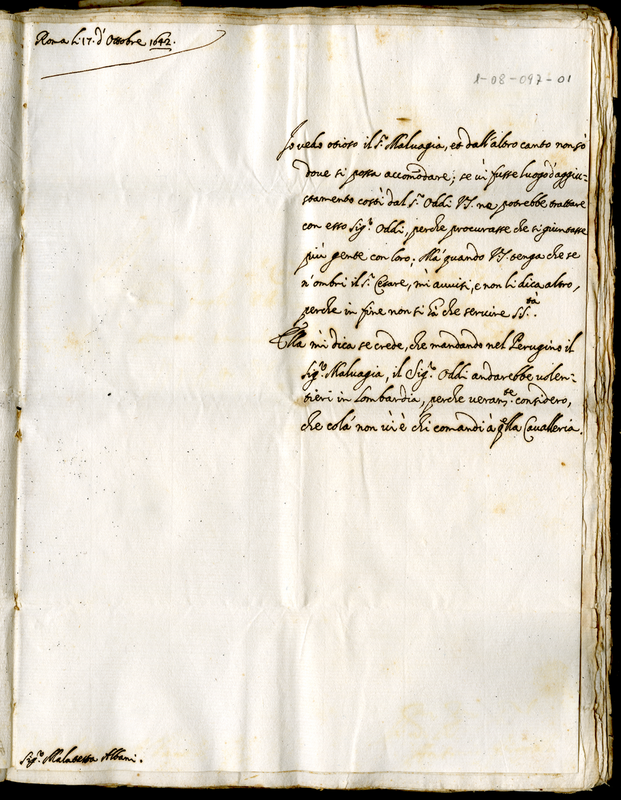 Roma li 17. d'Ottobre 1642.
1-08-097-01
Io vedo otioso il S.r Malvagia, et dall'altro canto non sò
dove si possa accomodare; se vi fusse luogo d'aggiu-
stamento costì dal S.r Oddi VS. ne potrebbe trattare
con esso Sig.r Oddi, perche procurasse che si giuntasse
più gente con loro. Mà quando VS. tenga che se
n'ombri il S.r Cesare, mi avvisi, e non li dica altro,
perche in fine non si hà che servire SS.tà.
Ella mi dica se crede, che mandando nel Perugino il
Sig.r Malvagia, il Sig.r Oddi andarebbe volen-
tieri in Lombardia, perche veram.te considero,
che colà non vi è chi comandi à q.lla Cavalleria.
Sig.r Malatesta Albani.